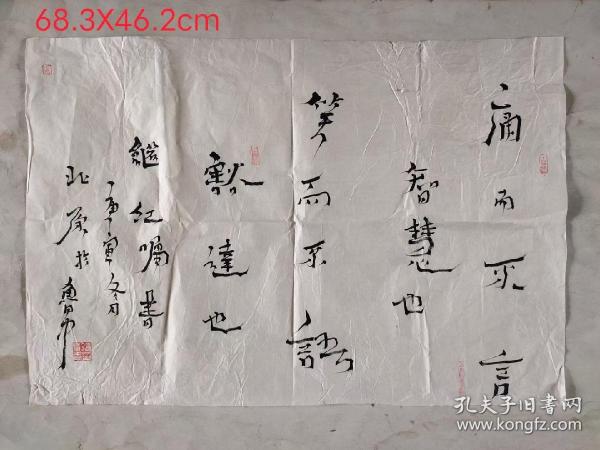 68.3X46.2cm
痛而不言
智慧也
笑而不語
豁達也
繼紅嘱書
庚寅冬月
北
於魯中
孔夫子旧書网
www.kongfz.com